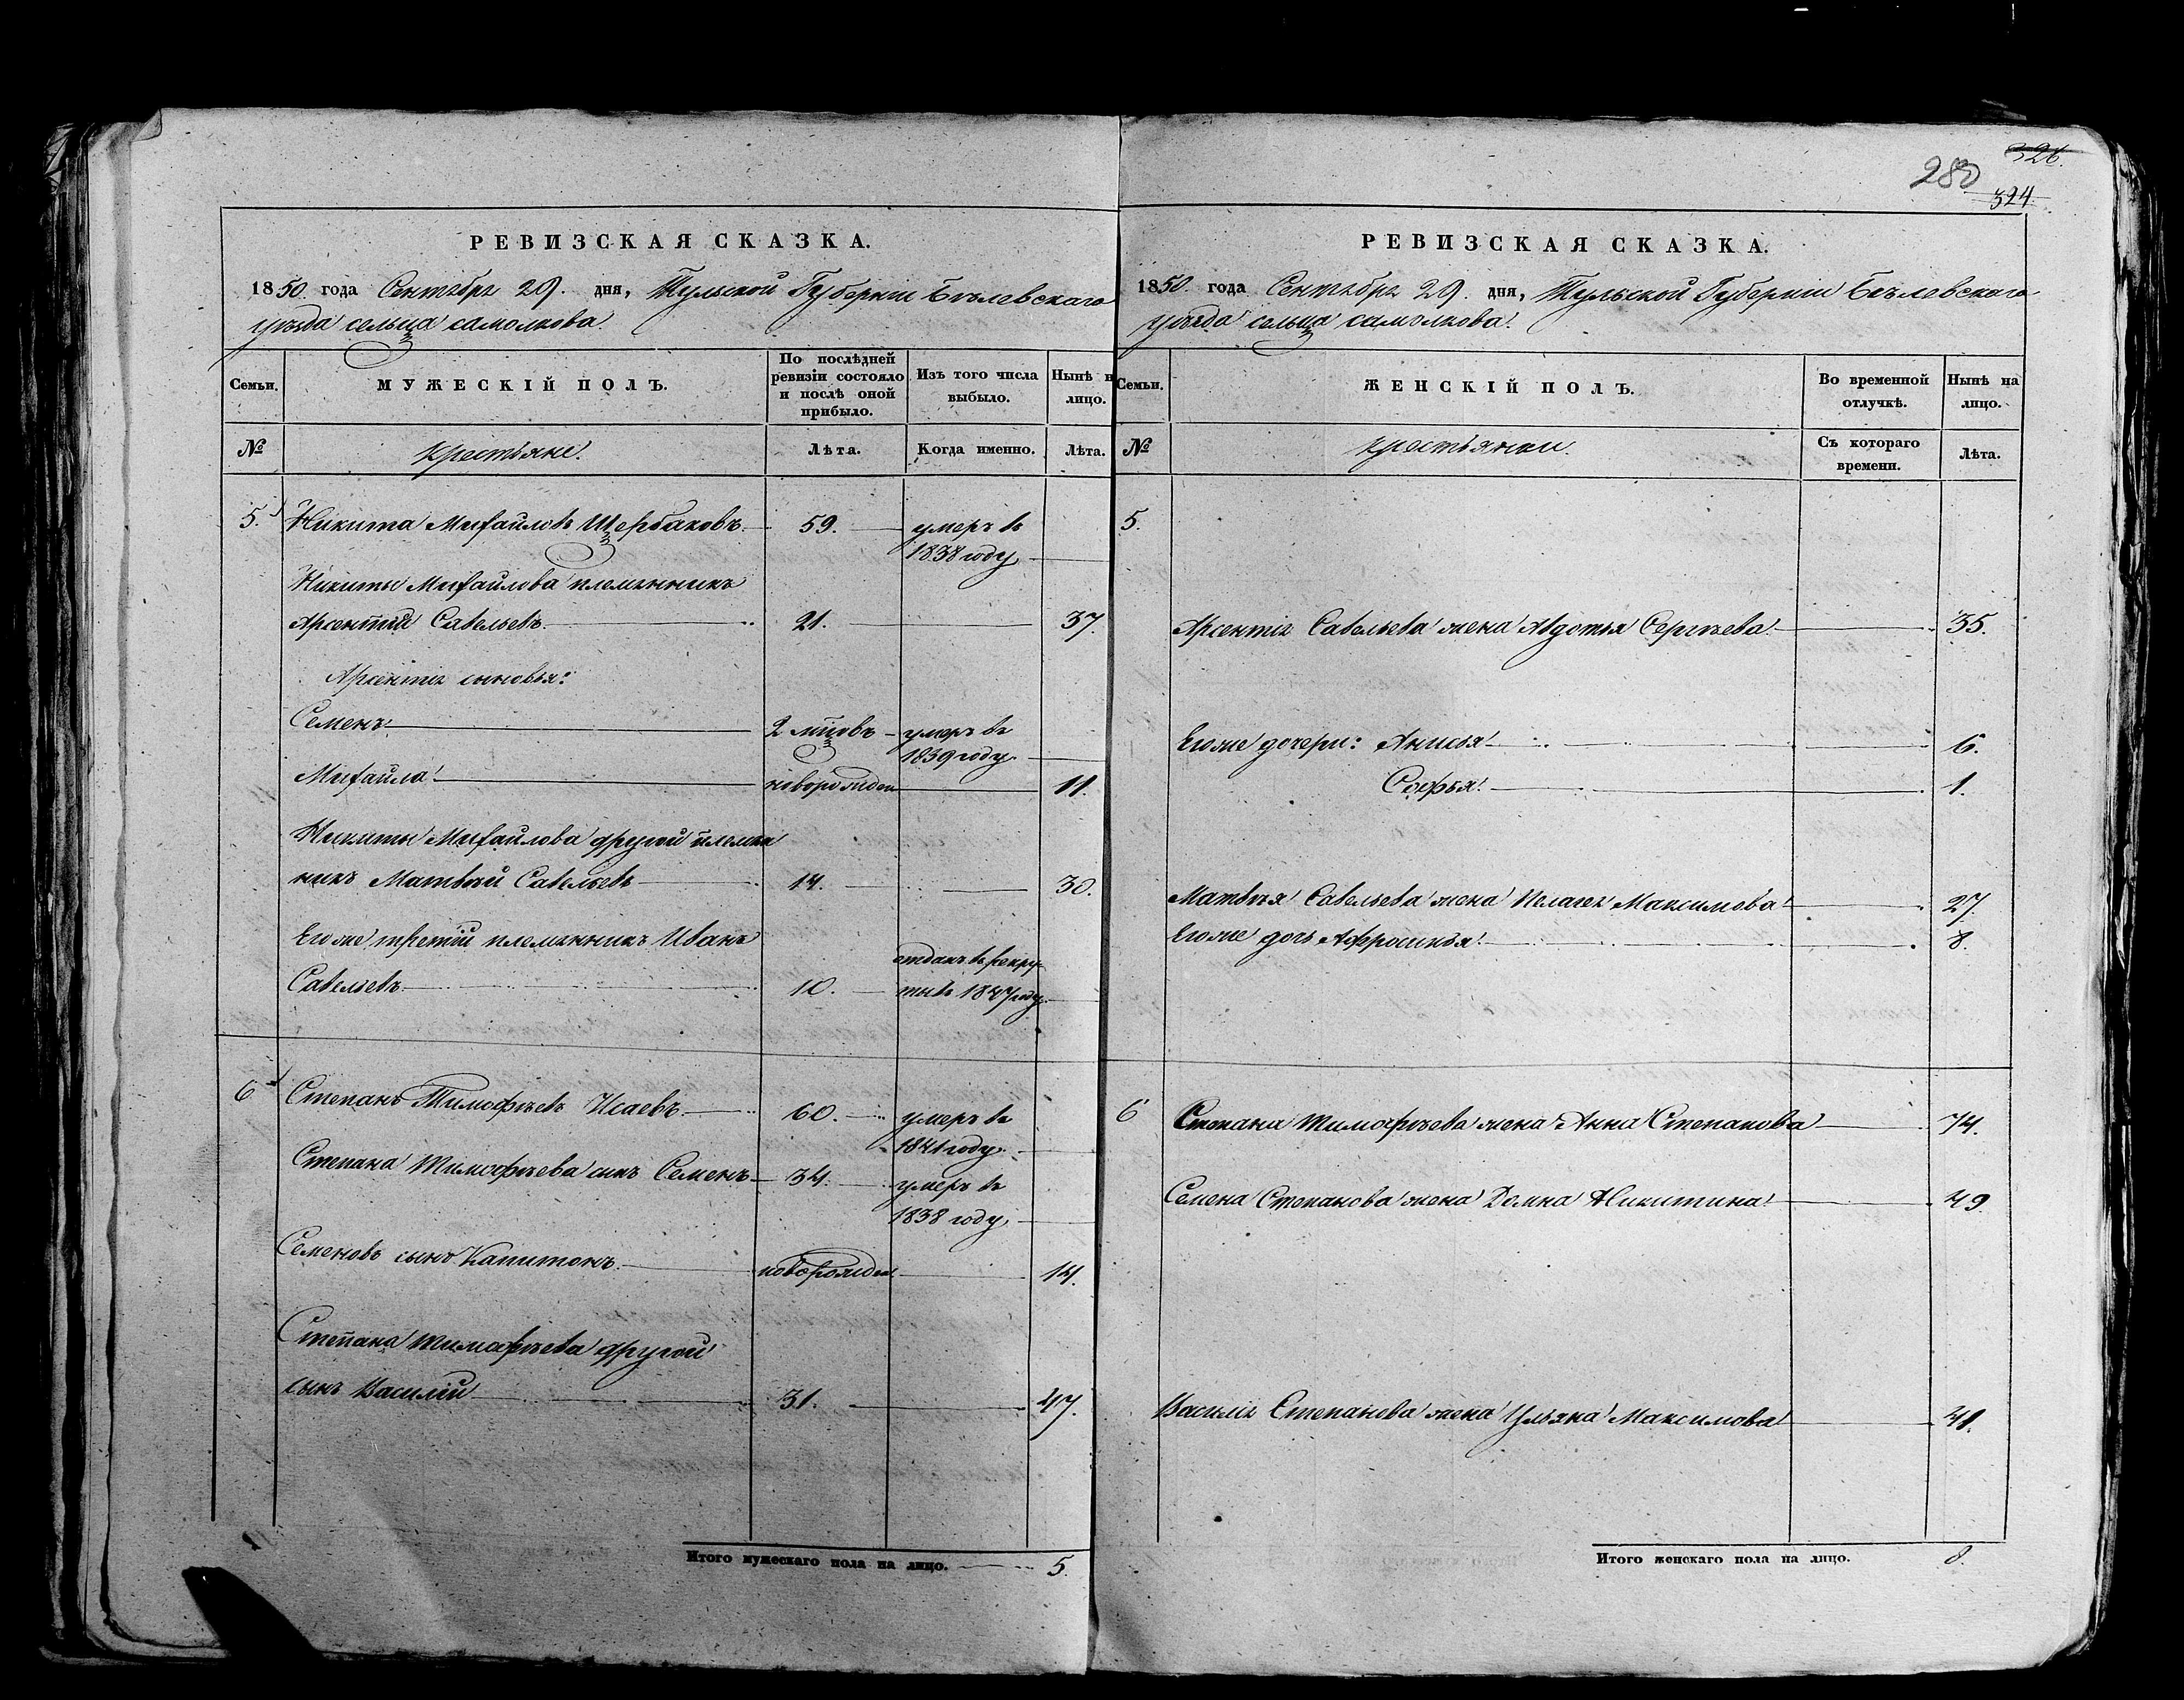 326.
280
324
РЕВИЗСКАЯ СКАЗКА.
1850. года Сентября 29. дня, Тульской Губерніи Бѣлевскаго
уѣзда сельца самолкова.
Семьи. МУЖЕСКІЙ ПОЛЪ. По послѣдней ревизіи состояло и послѣ оной прибыло. Изъ того числа выбыло. Нынѣ н лицо.
№ Крестьяне. Лѣта. Когда именно. Лѣта.
5. Никита Михайловъ Щербаковъ. 59. умеръ въ
1838 году
Никиты Михайлова племянникъ
Арсентий Савельевъ. 21. 37.
Арсентія сыновья:
Семенъ 2 мцовъ умеръ въ
1839 году.
Михайла новорожден 11.
Никиты Михайлова другой племян
никъ Матвѣй Савельевъ 14. 30.
Егоже третій племянникъ Иванъ
отданъ въ рекру-
Савельевъ. 10. ты въ 1847 году.
6 Степанъ Тимофѣевъ Исаевъ. 60. умеръ въ
1841 году.
Степана Тимофѣева сынъ Семенъ 34. умеръ въ
1838 году,
Семеновъ сынъ Капитонъ. новорожден. 14.
Степана Тимофѣева другой
сынъ Василий 31. 47.
Итого мужескаго пола на лицо. 5.
РЕВИЗСКАЯ СКАЗКА.
1850. года Сентября 29. дня, Тульской Губерніи Бѣлевскаго
уѣзда сельца самолкова.
Семьи. ЖЕНСКІЙ ПОЛЪ. Во временной отлучкѣ. Нынѣ на лицо.
№ Крестьянки. Съ котораго времени. Лѣта.
5.
Арсентія Савельева жена Авдотья Сергѣева. 35.
Егоже дочери: Анисья 6.
Софья. 1.
Матвѣя Савельева жена Пелагея Максимова 27.
Егоже дочь Афросинья. 8.
6 Степана Тимофѣева жена Анна Степанова 74.
Семена Степанова жена Домна Никитина 49.
Василія Степанова жена Ульяна Максимова 41.
Итого женскаго пола на лицо. 8.